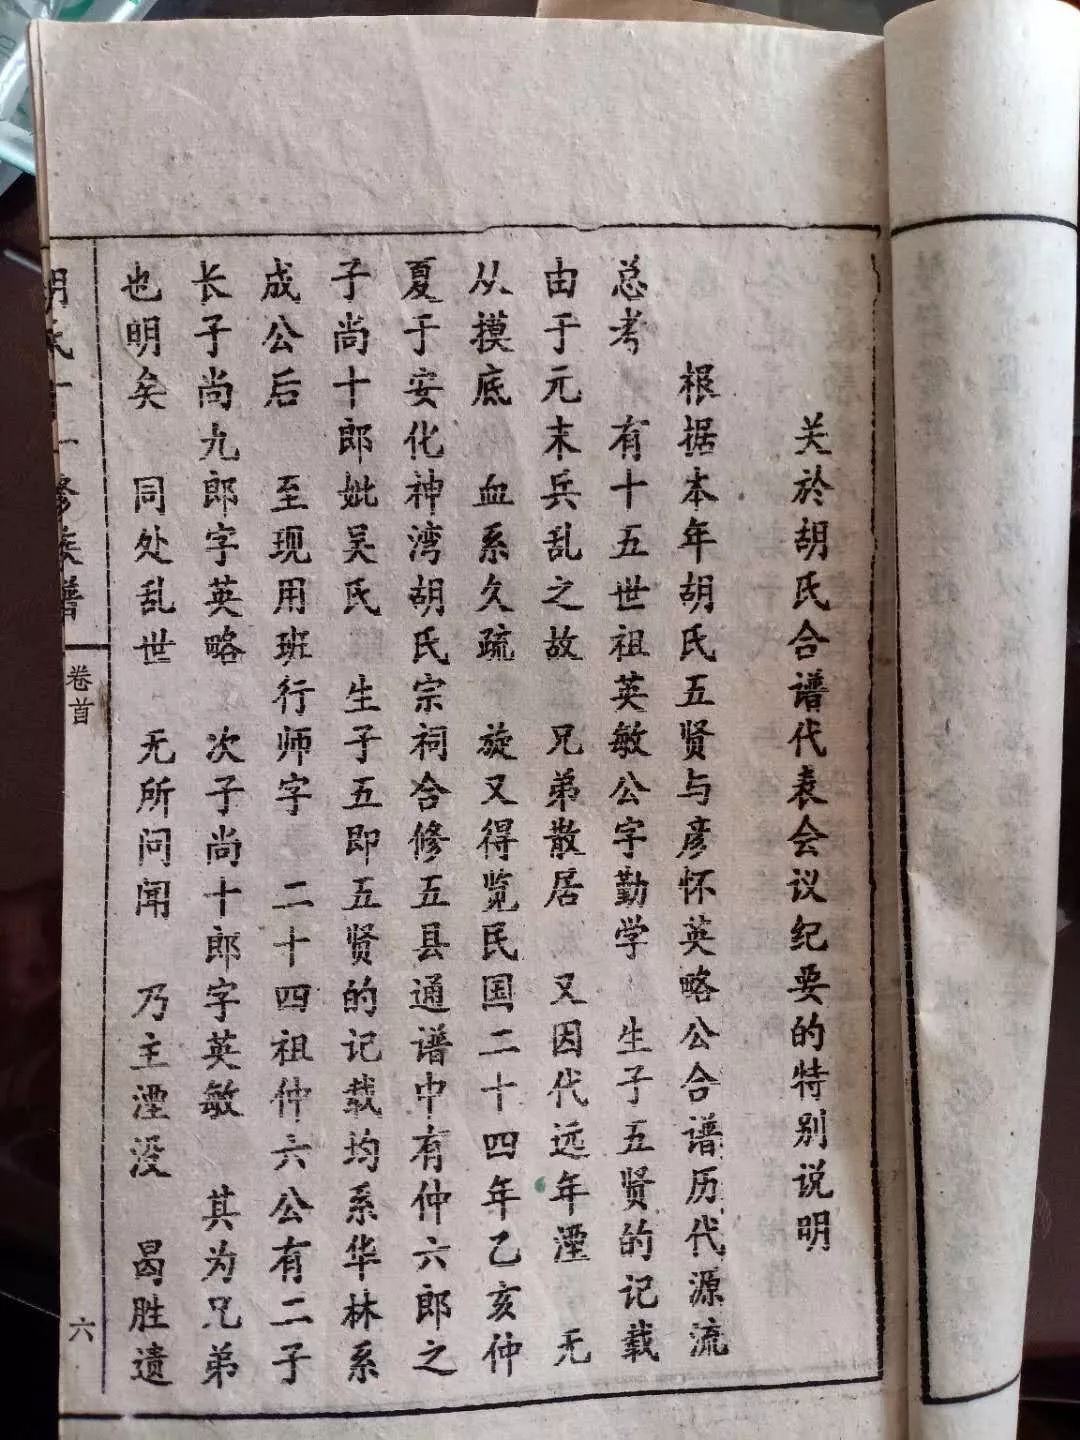 关於胡氏合谱代表会议纪要的特别说明
根据本年胡氏五贤与彦怀英略公合谱历代源流
总考 有十五世祖英敏公字勤学 生子五贤的记载
由于元末兵乱之故 兄弟散居 又因代远年湮 无
从摸底 血系久疏 旋又得览民国二十四年乙亥仲
夏于安化神湾胡氏宗祠合修五县通谱中有仲六郎之
子尚十郎妣吴氏 生子五即五贤的记载均系华林系
成公后 至现用班行师字 二十四祖仲六公有二子
长子尚九郎字英略 次子尚十郎字英敏 其为兄弟
也明矣 同处乱世 无所问闻 乃主湮没 曷胜遗
胡氏十一修族谱
卷首
六